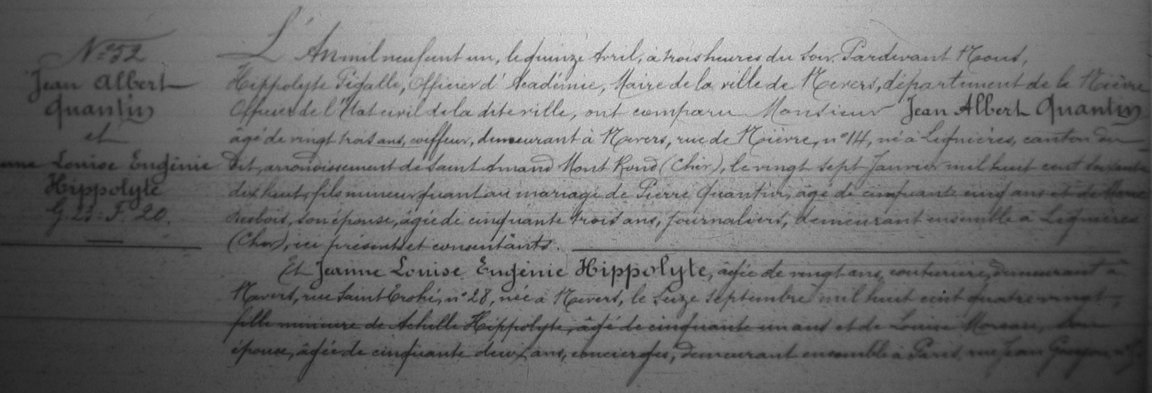 N° 52
Jean Albert
Quantin
et
Louise Eugénie
Hippolyte
G. 23. F. 20.
L'An mil neuf cent un, le quinze Avril, à trois heures du soir. Pardevant Nous,
Hippolyte Pigalle, Officier d'Académie, Maire de la ville de Nevers, département de la Nièvre
Officier de l'Etat civil de la dite ville, ont comparu Monsieur Jean Albert Quantin
âgé de vingt trois ans, coiffeur, demeurant à Nevers, rue de Nièvre, n° 14, né à Lignières, canton du
Dit, arrondissement de Saint Amand Mont Rond (Cher), le vingt sept Janvier mil huit cent soixante
dix huit, fils mineur quant au mariage de Pierre Quantin, âgé de cinquante cinq ans et de
son épouse, âgée de cinquante trois ans, journaliers, demeurant ensemble à Lignières
(Cher), ici présents et consentants.
Et Jeanne Louise Eugénie Hippolyte, âgée de vingt ans, couturière, demeurant à
Nevers, rue Saint n° 28, née à Nevers, le Septembre mil huit cent quatre vingt,
fille mineure de Achille Hippolyte, âgé de cinquante un ans et de Louise Moreau, son
épouse, âgée de cinquante deux ans, concierges, demeurant ensemble à Paris, rue Jean Goujon, n°